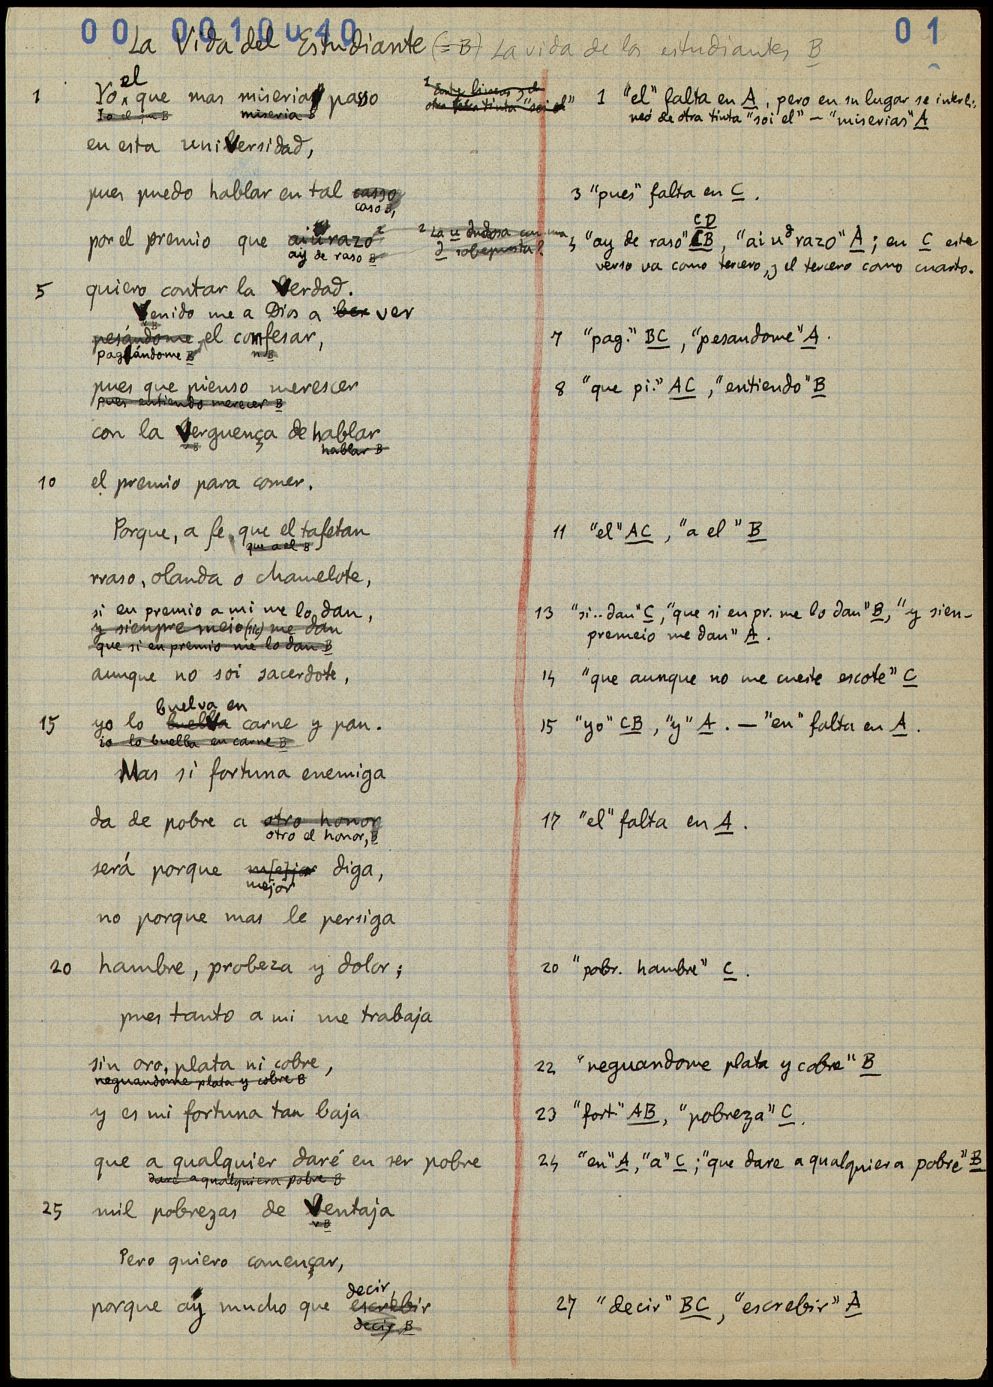 00 0010 u 40 01
La Vida del Estudiante (= B) La vida de los estudiantes B
1 Yo el que mas miserias passo
Io el que B miseria B
1 "el" falta en A, pero en su lugar se interli-
neó de otra tinta "soi el" — "miserias" A
en esta universidad,
pues puedo hablar en tal casso
caso B,
3 "pues" falta en C.
por el premio que aiurazo
ay de raso B
2 La u dudosa con una
d sobepuesta?
4 "ay de raso" CD CB, "aiudrazo" A; en C este
verso va como tercero, y el tercero como cuarto.
5 quiero contar la Verdad.
Venido me a Dios a ber ver
pesándome el confesar,
pagándome B n B
7 "pag." BC, "pesandome" A.
pues que pienso merescer
pues entiendo merecer B
8 "que pi." AC, "entiendo" B
con la Verguença de hablar
hablar B
10 el premio para comer.
Porque, a fe, que el tafetan
que a el B
11 "el" AC, "a el" B
rraso, olanda o chamelote,
si en premio a mi me lo dan,
y sienpre meio (sic) me dan
que si en premio me lo dan B
13 "si..dan" C, "que si en pr. me lo dan" B, "y sien-
premeio me dan" A.
aunque no soi sacerdote,
14 "que aunque no me cueste escote" C
buelva en
15 yo lo buelVa carne y pan.
io lo buelba en carne B
15 "yo" CB, "y" A. — "en" falta en A.
Mas si fortuna enemiga
da de pobre a otro honor
otro el honor, B
17 "el" falta en A.
será porque m[e]jor diga,
mejor
no porque mas le persiga
20 hambre, probeza y dolor;
20 "pobr. hambre" C.
pues tanto a mi me trabaja
sin oro, plata ni cobre,
neguandome plata y cobre B
22 "neguandome plata y cobre" B
y es mi fortuna tan baja
23 "fort" AB, "pobreza" C.
que a qualquier daré en ser pobre
daré a qualquiera pobre B
24 "en" A, "a" C; "que dare a qualquiera pobre" B
25 mil pobrezas de Ventaja
v B
Pero quiero començar,
decir
porque ay mucho que escrebir
decir B
27 "decir" BC, "escrebir" A